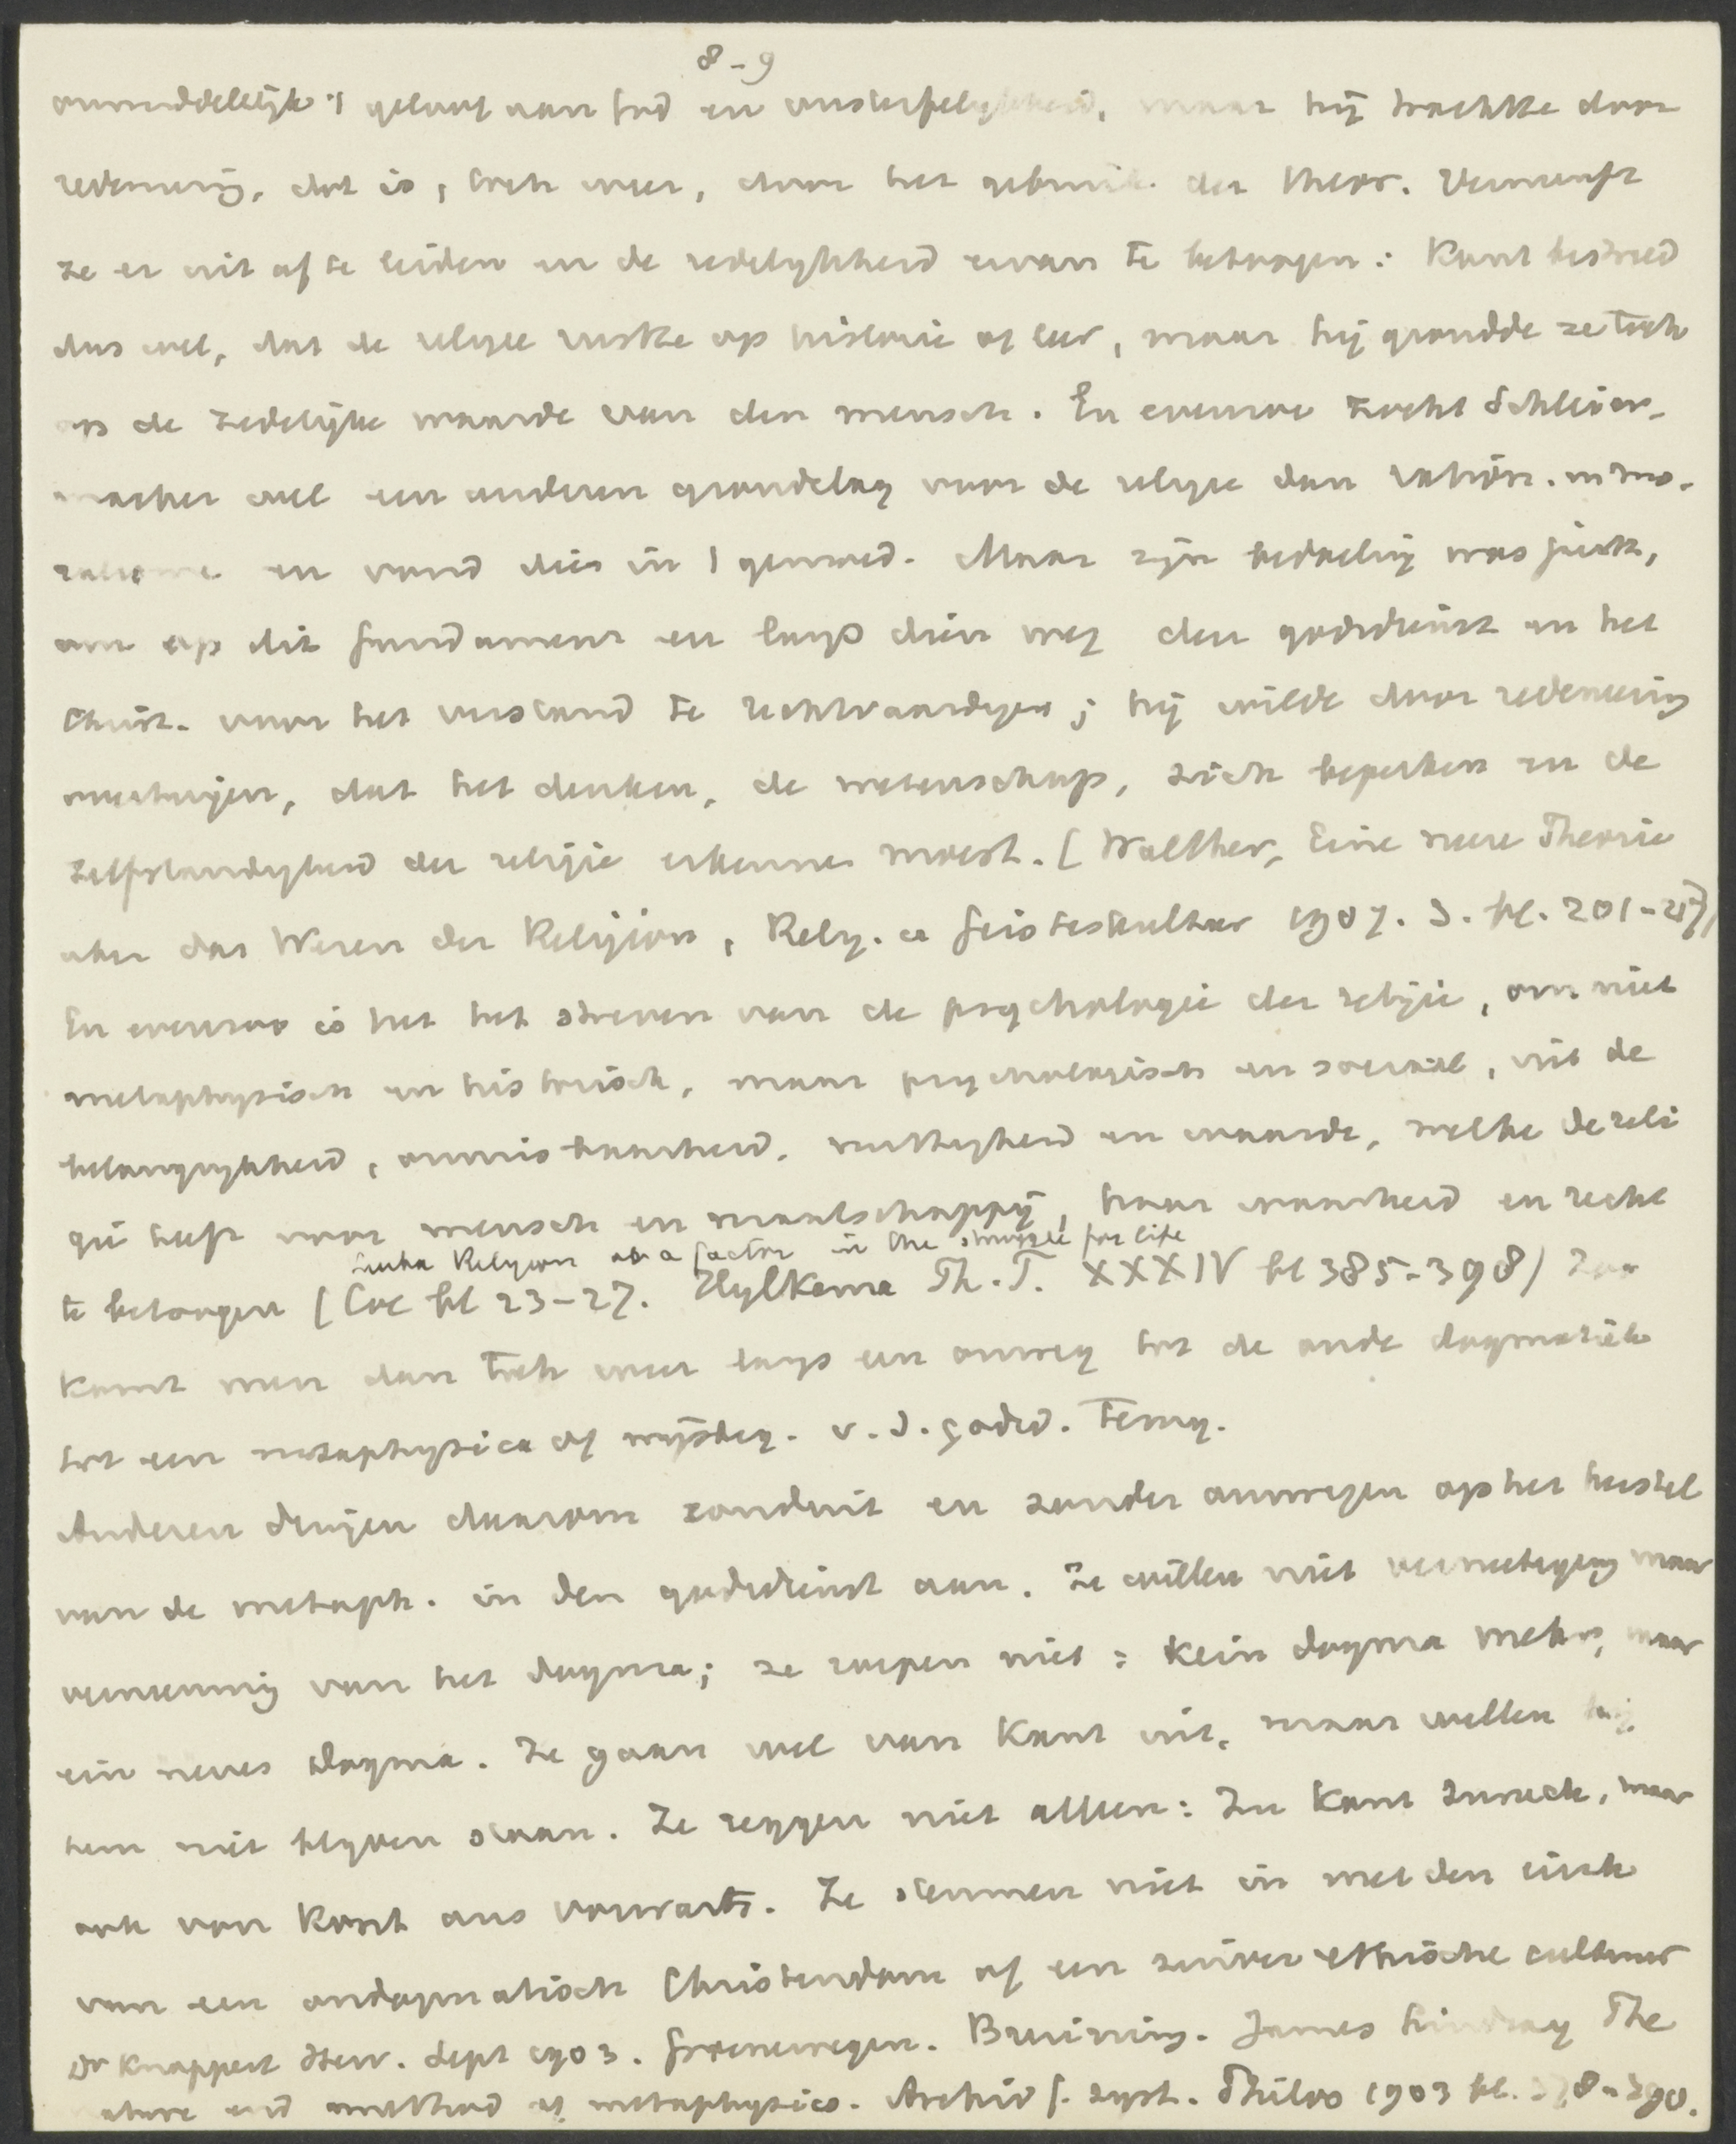 8-9
onmiddellijk 't geloof aan God en onsterfelykheid, maar hij trachtte door
redeneering, dat is, toch weer, door het gebruik der theor. Vernunft
ze er uit af te leiden en de redelykheid ervan te betoogen: Kant bestreed
dus wel, dat de religie rustte op historie of leer, maar hij grondde ze toch
op de zedelijke waarde van den mensch. En evenzoo zocht Schleier-
macher wel een anderen grondslag voor de religie dan ration. in mo-
ralisme en vond dien in 't gemoed. Maar zijn bedoeling was juist,
om op dit fundament en langs dien weg den godsdienst en het
Christ. voor het verstand te rechtvaardigen; hij wilde door redeneering
overtuigen, dat het denken, de wetenschap, zich beperken en de
zelfstandigheid der religie erkennen moest. (Walther, Eine neue Theorie
uber das Wesen der Religion, Relig. u Geisteskultur 1907. 3. bl. 201-217)
En evenzoo is het het streven van de psychologie der religie, om niet
metaphysisch en historisch, maar psychologisch en sociaal, uit de
belangrykheid, onmisbaarheid, nuttigheid en waarde, welke de reli
gie heeft voor mensch en maatschappij, haar waarheid en recht
Leuba Religion as a factor in the struggle for life
te betoogen (Coe bl 23-27. Hylkema Th. T. XXXIV bl 385-398) Zoo
komt men dan toch weer langs een omweg tot de oude dogmatiek
tot een metaphysica of wijsbeg. v. d. godsd. terug.
Anderen dringen daarom ronduit en zonder omwegen op het herstel
van de metaph. in den godsdienst aan. Ze willen niet vernietiging maar
vernieuwing van het dogma; ze roepen niet: kein dogma mehr, maar
ein neues Dogma. Ze gaan wel van Kant uit, maar willen bij
hem niet blyven staan. Ze zeggen niet alleen: Zu Kant zuruck, maar
ook von Kant aus vorwarts. Ze stemmen niet in met den eisch
van een ondogmatisch Christendom of een zuiver ethische cultuur
Dr Knappert Herv. Sept 1903. Groenewegen. Bruining. James Lindsay The
nature and method of metaphysics. Archiv f. syst. Philos 1903 bl. 378-390.